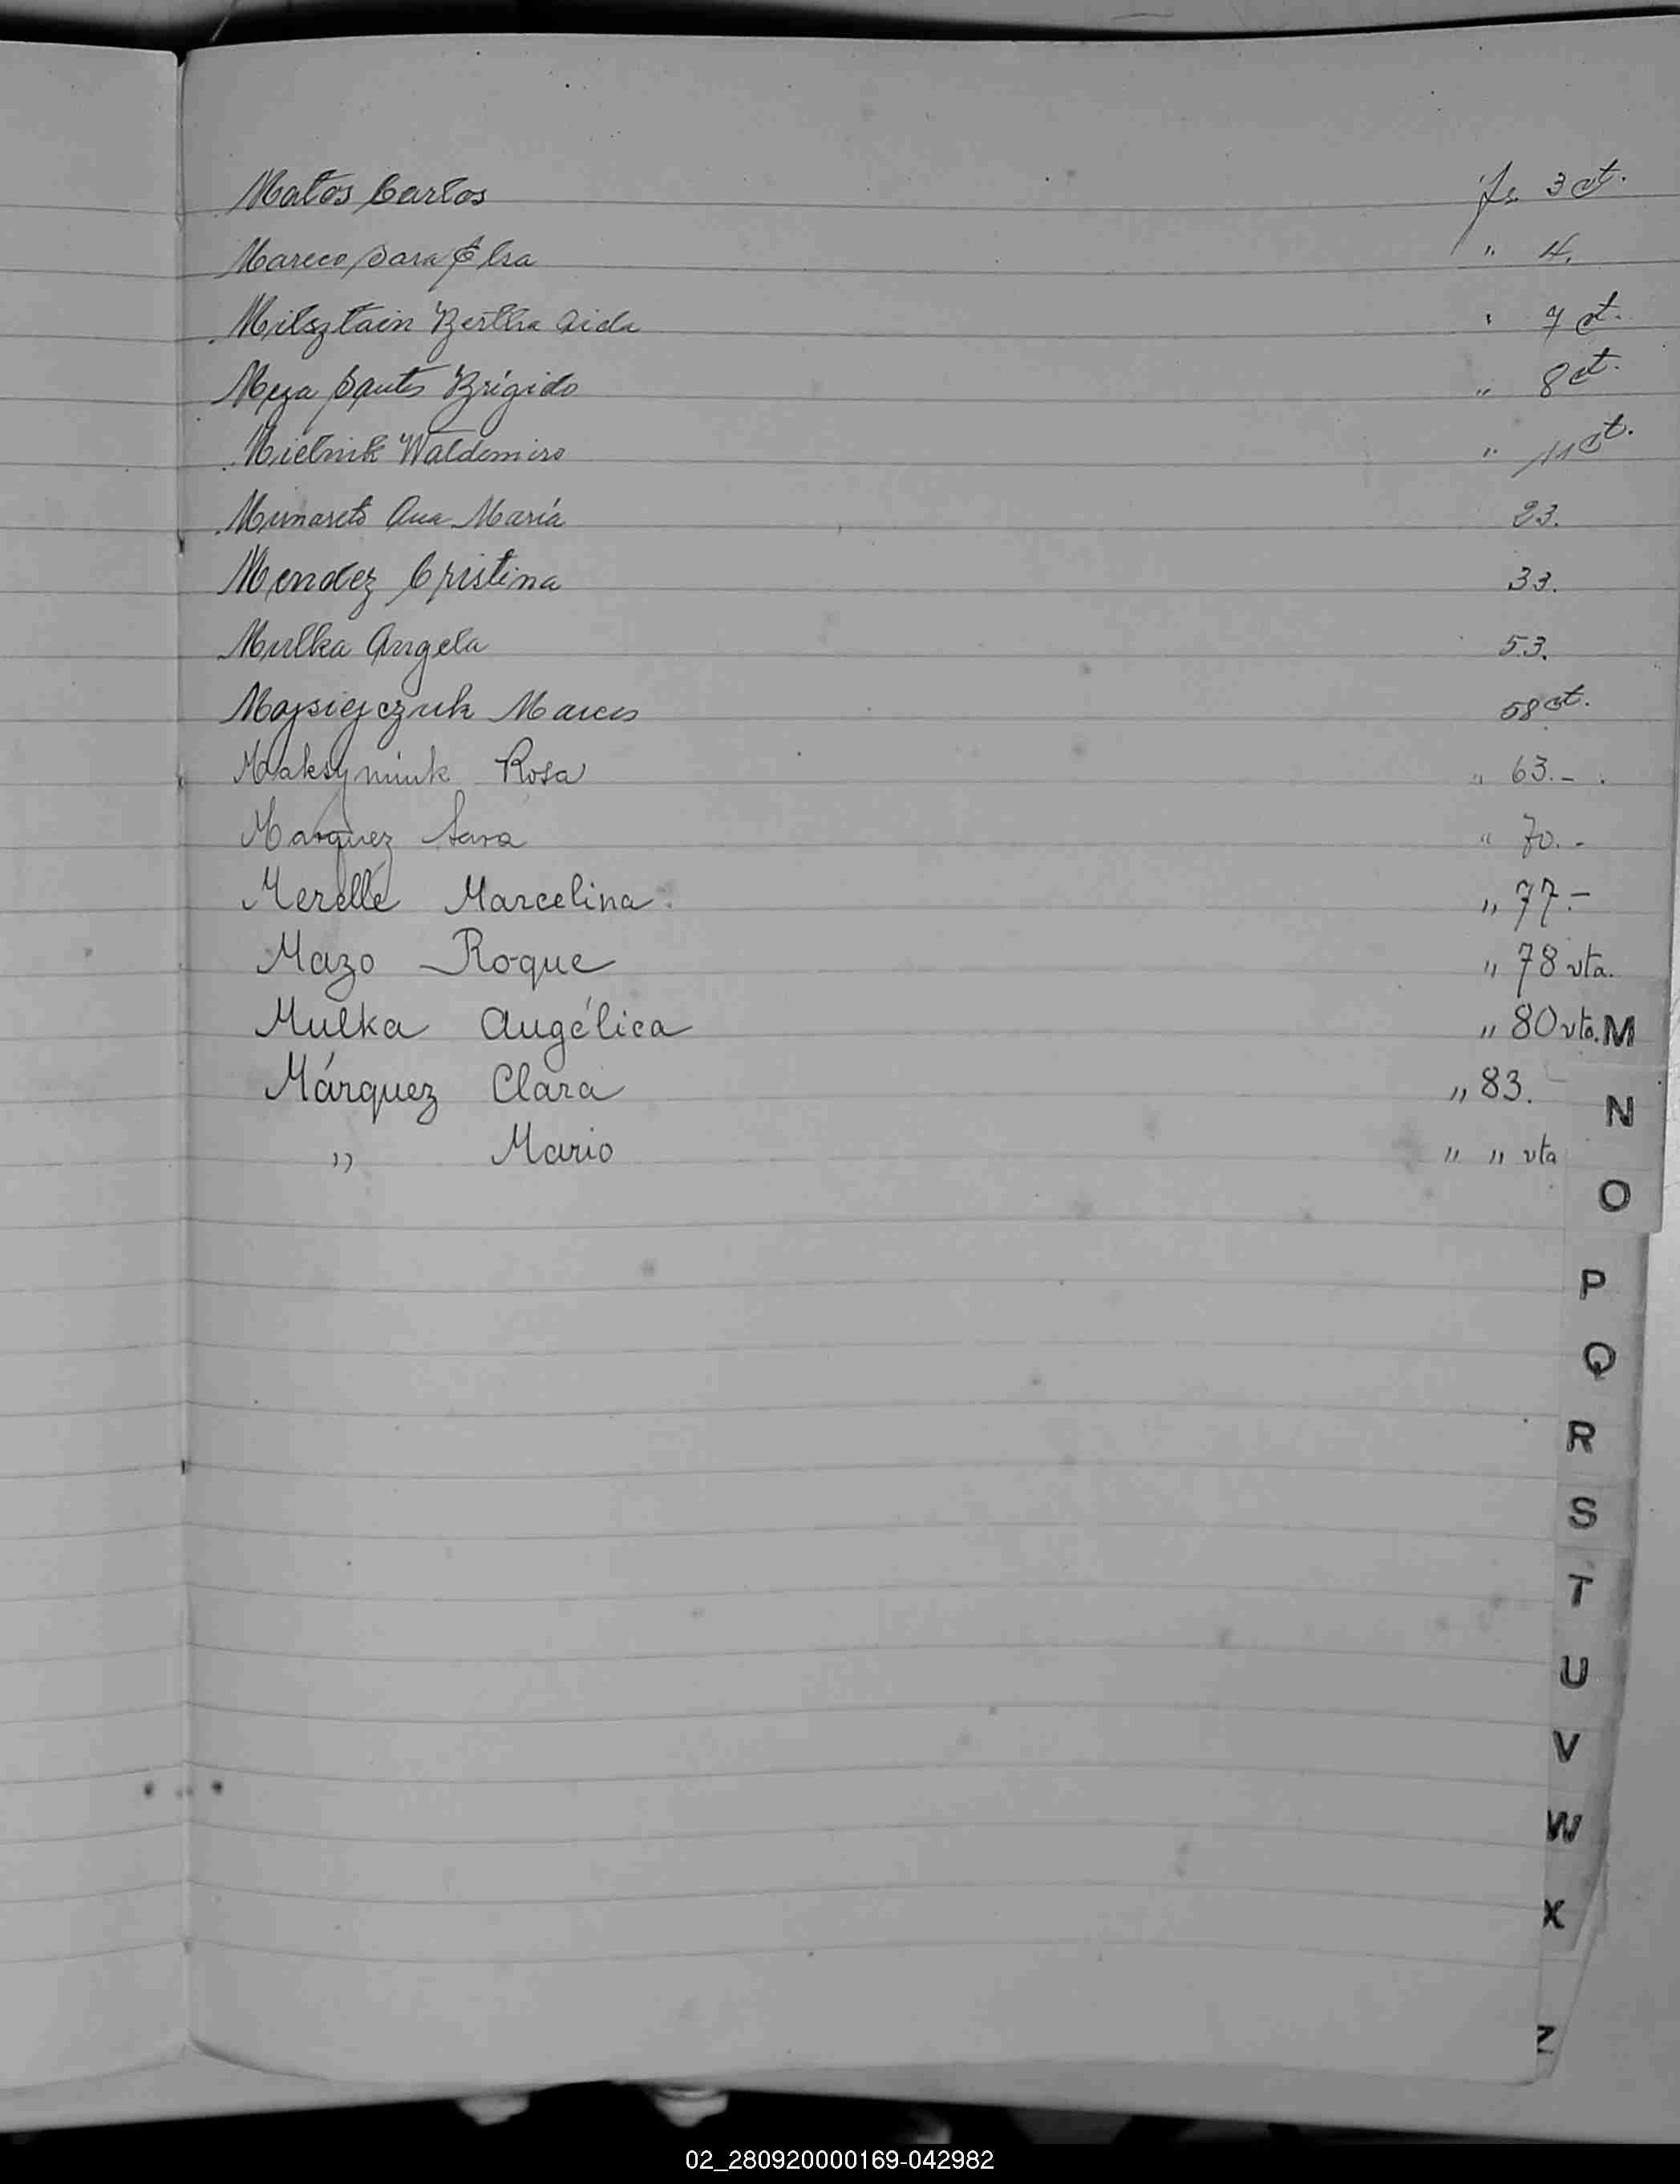 Matos Carlos fs. 3 vt.
Mareco Sara Elsa " 4.
Milsztain Bertha Aida " 7 vt.
Meza Santos Brígido " 8 vt.
Mielnik Waldomiro " 11 vt.
Munareto Ana María 23.
Mendez Cristina 33.
Mulka Angela 53.
Mojsiejczuk Marcos 58 vt.
Maksymiuk Rosa " 63.-
Marquez Sara " 70.-
Merelle Marcelina " 77.-
Mazo Roque " 78 vta.
Mulka Angélica " 80 vta.
Márquez Clara " 83.
" Mario " " vta
M
N
O
P
Q
R
S
T
U
V
W
X
Z
02_280920000169-042982